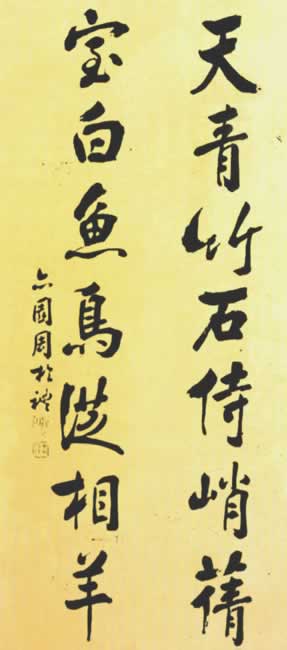 天青竹石侍峭蒨
室白魚鳥從相羊
亦園周於禮